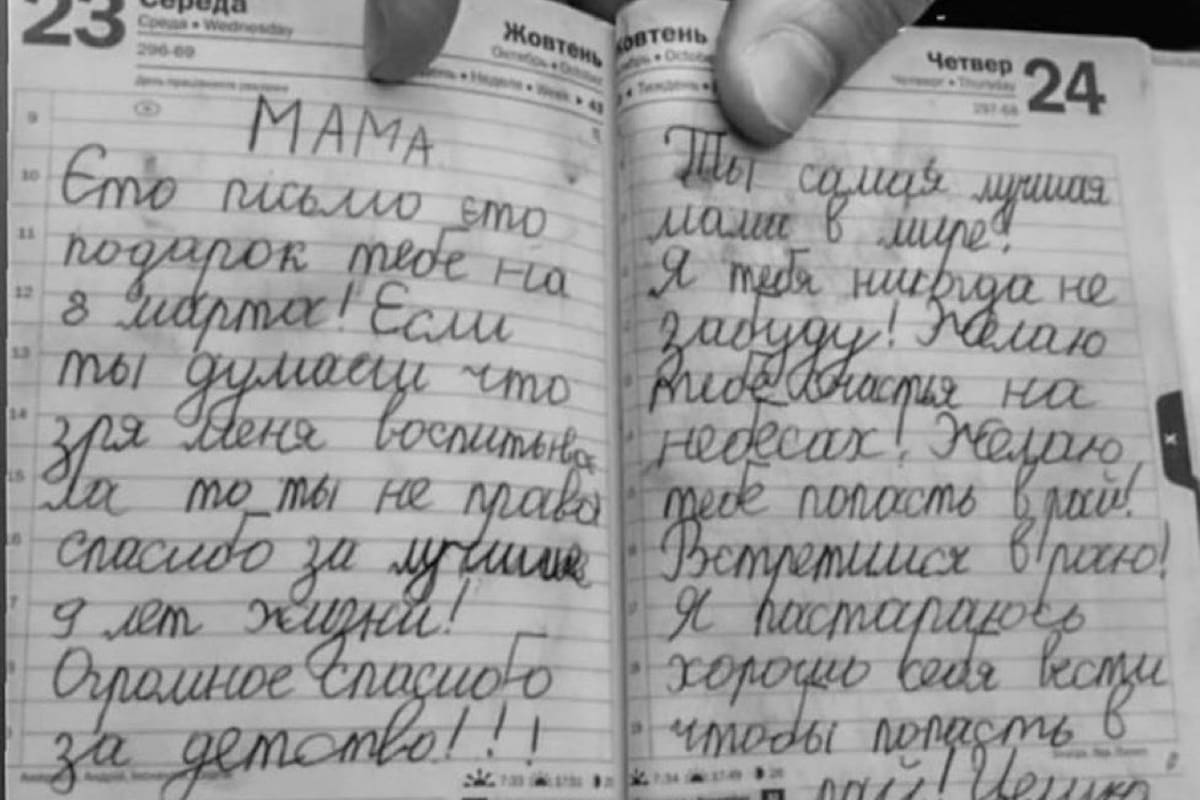 23 Середа
Среда • Wednesday
296-69
Жовтень
Октябрь • October
Неделя • Week ▸ 43
9
МАМА
10
Єто письмо єто
11
подарок тебе на
12
8 марта! Если
13
ты думаеш что
14
зря меня воспитыва
15
ла то ты не права
спасибо за лучшие
9 лет жизни!
Огромное спасибо
за детство!!!
7:33 17:51
Жовтень
Октябрь • October
Тиждень
Четвер 24
Четверг • Thursday
297-68
Ты самая лучшая
мама в мире!
Я тебя никогда не
забуду! Желаю
тебе счастья на
небесах! Желаю
тебе попасть в рай!
Встретимся в раю!
Я пастараюсь
хорошо себя вести
чтобы попасть в
рай! Целую
7:34 17:49